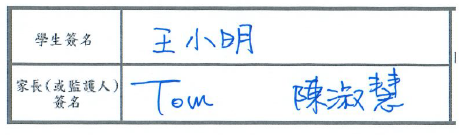 學生簽名 王小明
家長(或監護人)
簽名 Tom 陳淑慧